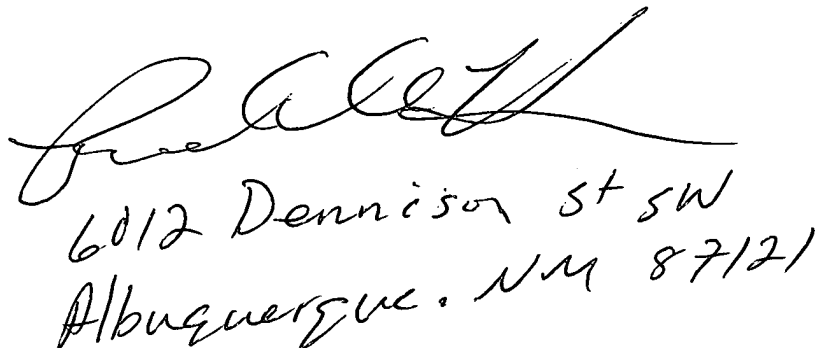 6012 Dennison St SW
Albuquerque. NM 87121